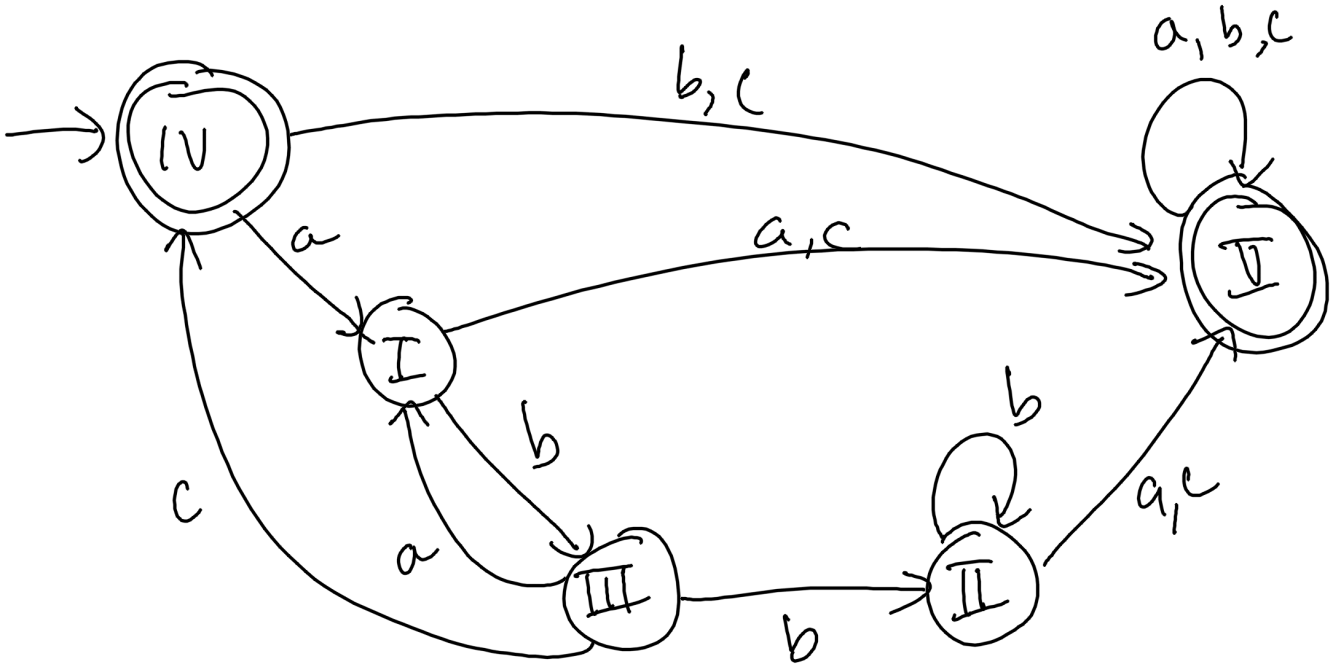 a, b, c
b, c
IV
a
a, c
V
I
b
b
c
a
a, c
III
II
b